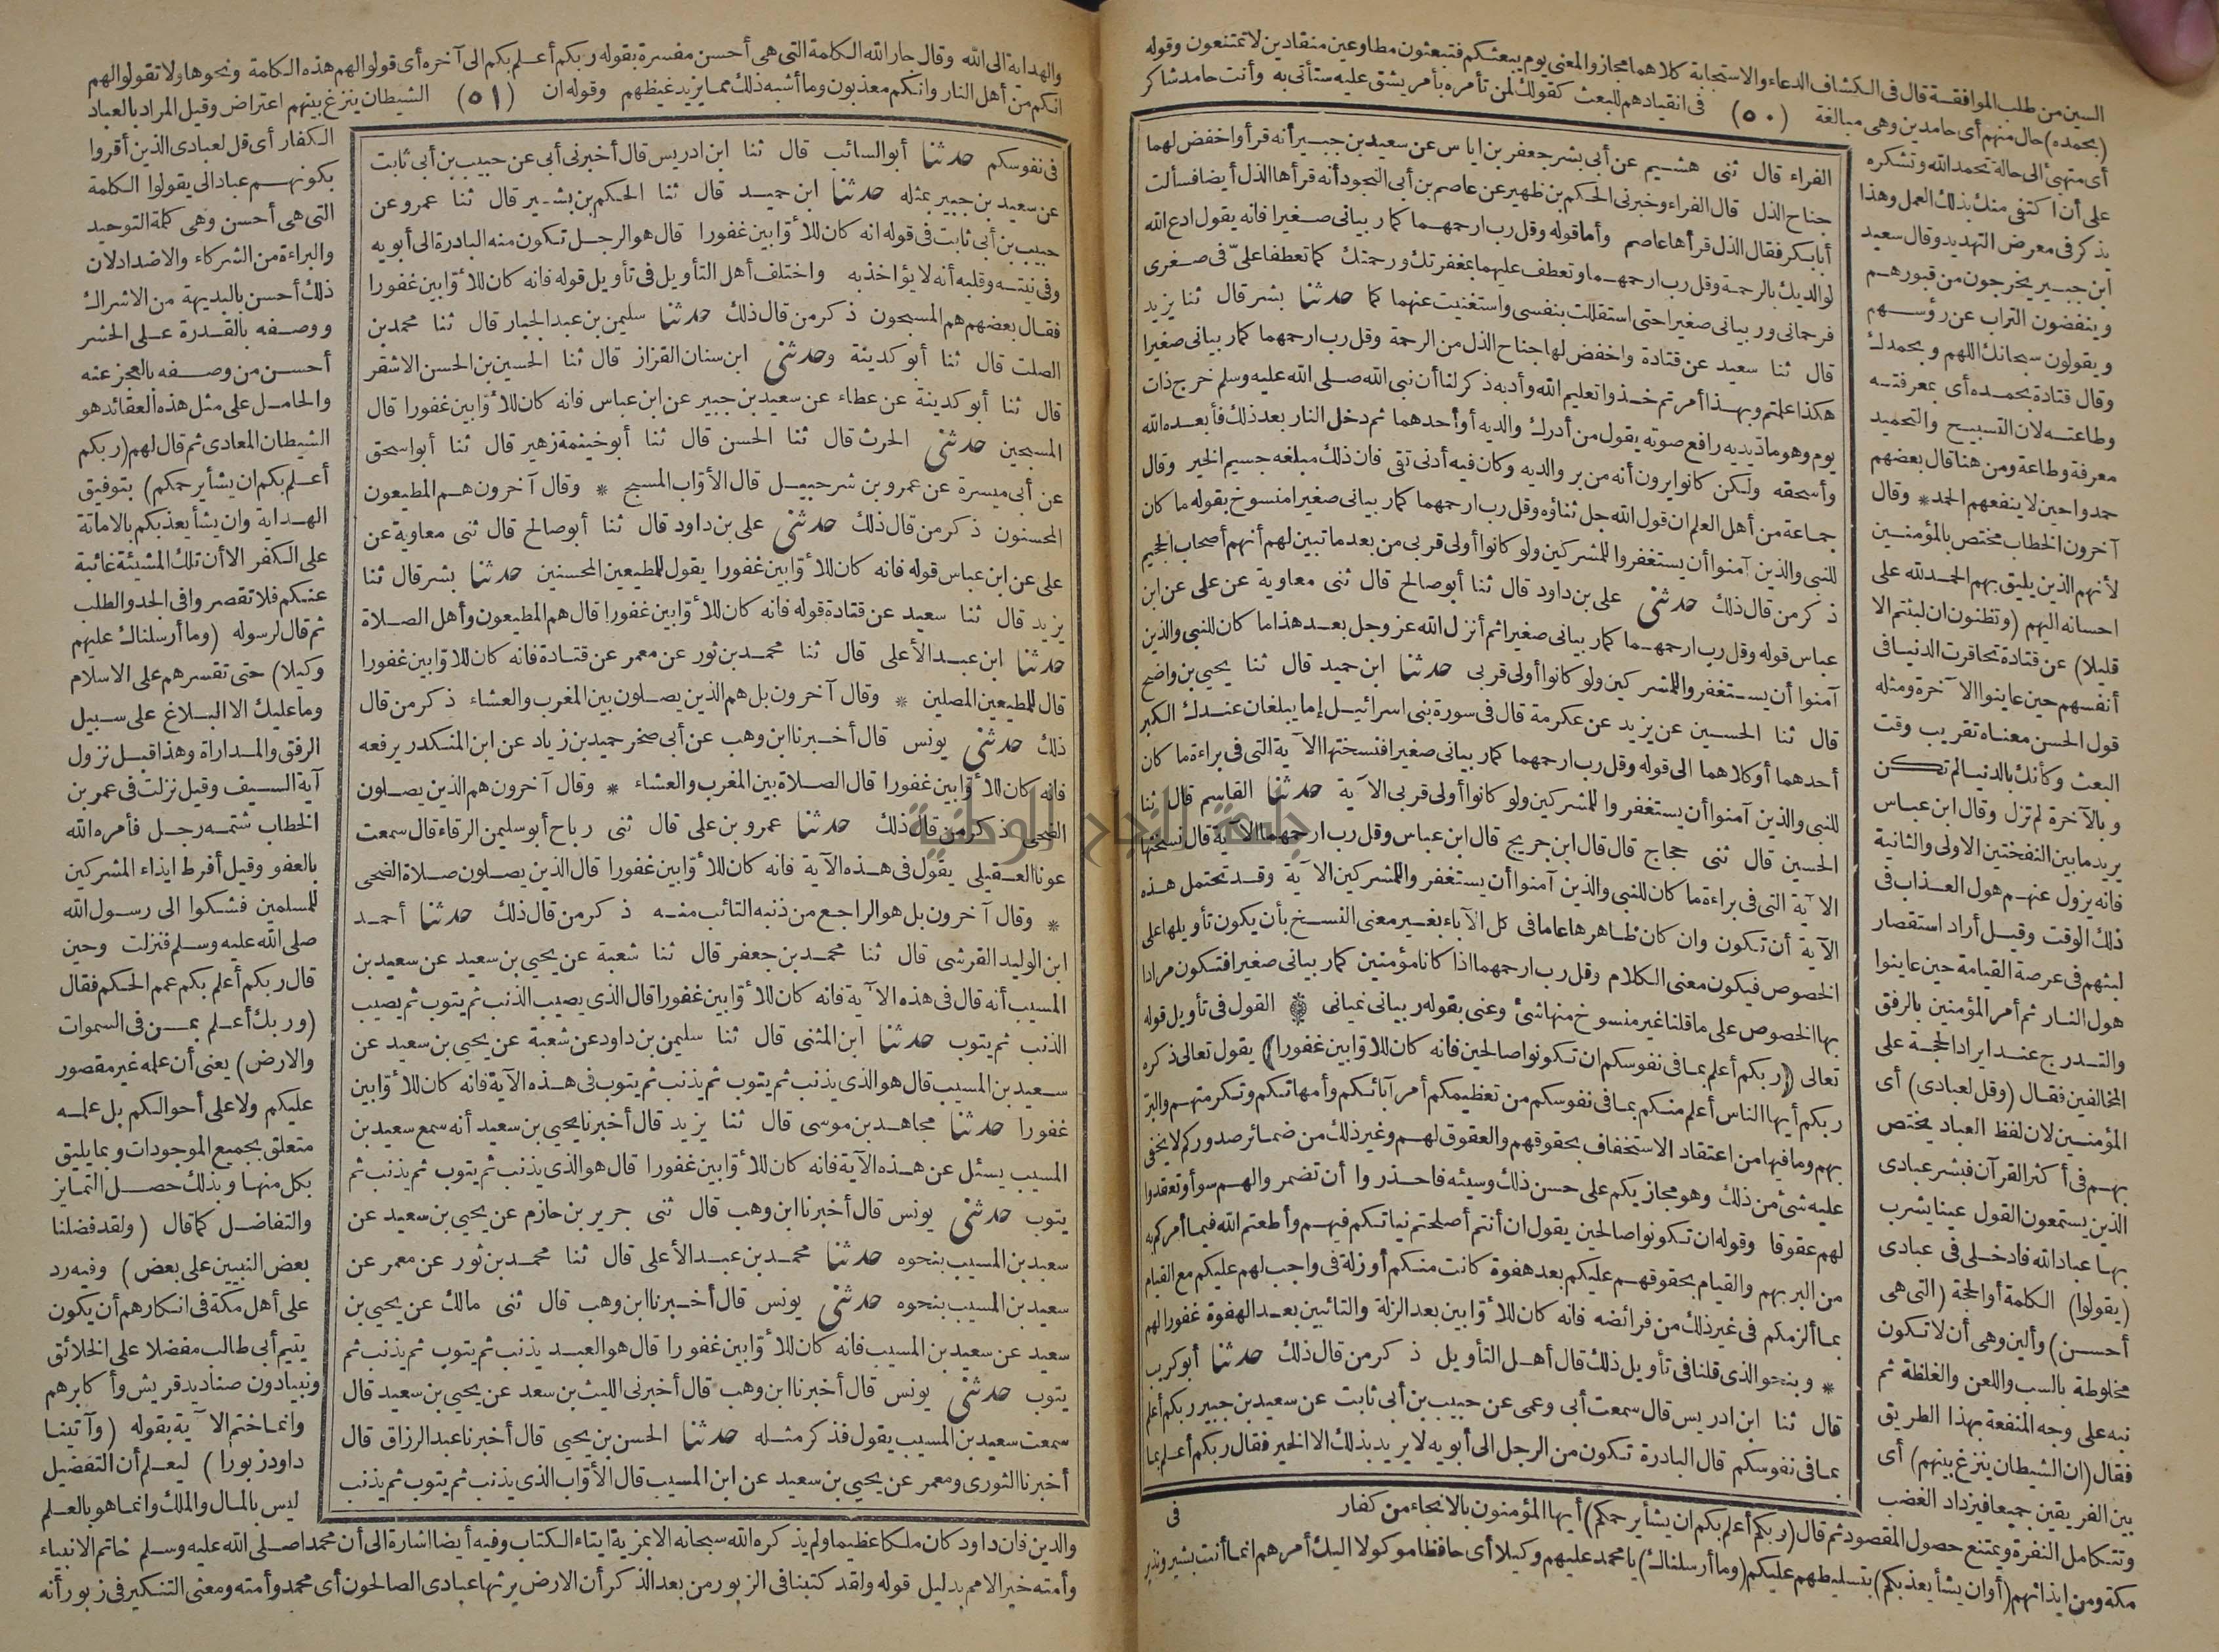 السين من طلب الموافقة قال فى الكشاف الدعاء والاستجابة كلاهما مجاز والمعنى يوم يبعثكم فتبعثون مطاوعين منقادين لا تمتنعون وقوله
(بحمده) حال منهم أى حامدين وهى مبالغة (٥٠) فى انقيادهم للبعث كقولك لمن تأمره بأمر يشق عليه ستأتى به وأنت حامد شاكر
أى متهئ الى حالة تحمد الله وتشكره
على أن اكتفى منك بذلك العمل وهذا
يذكر فى معرض التهديد وقال سعيد
ابن جبير يخرجون من قبورهم
وينفضون التراب عن رؤسهم
ويقولون سبحانك اللهم وبحمدك
وقال قتادة بحمده أى بمعرفته
وطاعته لان التسبيح والتحميد
معرفة وطاعة ومن هنا قال بعضهم
حمدوا حين لا ينفعهم الحمد * وقال
آخرون الخطاب مختص بالمؤمنين
لأنهم الذين يليق بهم الحمد لله على
احسانه اليهم (وتظنون ان لبثتم الا
قليلا) عن قتادة تحاقرت الدنيا فى
أنفسهم حين عاينوا الآخرة ومثله
قول الحسن معناه تقريب وقت
البعث وكأنك بالدنيا لم تكن
وبالآخرة لم تزل وقال ابن عباس
يريد ما بين النفختين الاولى والثانية
فانه يزول عنهم هول العذاب فى
ذلك الوقت وقيل أراد استقصار
لبثهم فى عرصة القيامة حين عاينوا
هول النار ثم أمر المؤمنين بالرفق
والتدرج عند ايراد الحجة على
المخالفين فقال (وقل لعبادى) أى
المؤمنين لان لفظ العباد يختص
بهم فى أكثر القرآن فبشر عبادى
الذين يستمعون القول عينا يشرب
بها عباد الله فادخلى فى عبادى
(يقولوا) الكلمة أو الحجة (التى هى
أحسن) وألين وهى أن لا تكون
مخلوطة بالسب واللعن والغلظة ثم
نبه على وجه المنفعة بهذا الطريق
فقال (ان الشيطان ينزغ بينهم) أى
بين الفريقين جميعا فيزداد الغضب
الفراء قال ثنى هشيم عن أبى بشر جعفر بن اياس عن سعيد بن جبير أنه قرأ واخفض لهما
جناح الذل قال الفراء وخبرنى الحكم بن ظهير عن عاصم بن أبى النجود أنه قرأها الذل أيضا فسألت
أبا بكر فقال الذل قرأها عاصم وأما قوله وقل رب ارحمهما كما ربيانى صغيرا فانه يقول ادع الله
لوالديك بالرحمة وقل رب ارحمهما وتعطف عليهما بمغفرتك ورحمتك كما تعطفا علىّ فى صغرى
فرحمانى وربيانى صغيرا حتى استقللت بنفسى واستغنيت عنهما كما حدثنا بشر قال ثنا يزيد
قال ثنا سعيد عن قتادة واخفض لهما جناح الذل من الرحمة وقل رب ارحمهما كما ربيانى صغيرا
هكذا علمتم وبهذا أمرتم خذوا تعليم الله وأدبه ذكر لنا أن نبى الله صلى الله عليه وسلم خرج ذات
يوم وهو مادّ يديه رافع صوته يقول من أدرك والديه أو أحدهما ثم دخل النار بعد ذلك فأبعده الله
وأسحقه ولكن كانوا يرون أنه من بر والديه وكان فيه أدنى تقى فان ذلك مبلغه جسيم الخير وقال
جماعة من أهل العلم ان قول الله جل ثناؤه وقل رب ارحمهما كما ربيانى صغيرا منسوخ بقوله ما كان
للنبى والذين آمنوا أن يستغفروا للمشركين ولو كانوا أولى قربى من بعد ما تبين لهم أنهم أصحاب الجحيم
ذكر من قال ذلك حدثنى على بن داود قال ثنا أبو صالح قال ثنى معاوية عن على عن ابن
عباس قوله وقل رب ارحمهما كما ربيانى صغيرا ثم أنزل الله عز وجل بعد هذا ما كان للنبى والذين
آمنوا أن يستغفروا للمشركين ولو كانوا أولى قربى حدثنا ابن حميد قال ثنا يحيى بن واضح
قال ثنا الحسين عن يزيد عن عكرمة قال فى سورة بنى اسرائيل إما يبلغان عندك الكبر
أحدهما أو كلاهما الى قوله وقل رب ارحمهما كما ربيانى صغيرا فنسختها الآية التى فى براءة ما كان
للنبى والذين آمنوا أن يستغفروا للمشركين ولو كانوا أولى قربى الآية حدثنا القاسم قال ثنا
الحسين قال ثنى حجاج قال قال ابن جريج قال ابن عباس وقل رب ارحمهما الآية قال نسختها
الآية التى فى براءة ما كان للنبى والذين آمنوا أن يستغفروا للمشركين الآية وقد تحتمل هذه
الآية أن تكون وان كان ظاهرها عاما فى كل الآباء بغير معنى النسخ بأن يكون تأويلها على
الخصوص فيكون معنى الكلام وقل رب ارحمهما اذا كانا مؤمنين كما ربيانى صغيرا فتكون مرادا
بها الخصوص على ما قلنا غير منسوخ منها شئ وعنى بقوله ربيانى نميانى القول فى تأويل قوله
تعالى (ربكم أعلم بما فى نفوسكم ان تكونوا صالحين فانه كان للأوّابين غفورا) يقول تعالى ذكره
ربكم أيها الناس أعلم منكم بما فى نفوسكم من تعظيمكم أمر آبائكم وأمهاتكم وتكرمتهم والبرّ
بهم وما فيها من اعتقاد الاستخفاف بحقوقهم والعقوق لهم وغير ذلك من ضمائر صدوركم لا يخفى
عليه شئ من ذلك وهو مجازيكم على حسن ذلك وسيئه فاحذروا أن تضمروا لهم سوأ وتعقدوا
لهم عقوقا وقوله ان تكونوا صالحين يقول ان أنتم أصلحتم نياتكم فيهم وأطعتم الله فيما أمركم به
من البر بهم والقيام بحقوقهم عليكم بعد هفوة كانت منكم أو زلة فى واجب لهم عليكم مع القيام
بما ألزمكم فى غير ذلك من فرائضه فانه كان للأوّابين بعد الزلة والتائبين بعد الهفوة غفورا لهم
* وبنحو الذى قلنا فى تأويل ذلك قال أهل التأويل ذكر من قال ذلك حدثنا أبو كريب
قال ثنا ابن ادريس قال سمعت أبى وعمى عن حبيب بن أبى ثابت عن سعيد بن جبير ربكم أعلم
بما فى نفوسكم قال البادرة تكون من الرجل الى أبويه لا يريد بذلك الا الخير فقال ربكم أعلم بما
فى
وتتكامل النفرة ويمتنع حصول المقصود ثم قال (ربكم أعلم بكم ان يشأ يرحمكم) أيها المؤمنون بالانجاء من كفار
مكة ومن ايذائهم (أو ان يشأ يعذبكم) بتسليطهم عليكم (وما أرسلناك) يا محمد عليهم وكيلا أى حافظا موكولا اليك أمرهم انما أنت بشير ونذير
والهداية الى الله وقال جار الله الكلمة التى هى أحسن مفسرة بقوله ربكم أعلم بكم الى آخره أى قولوا لهم هذه الكلمة ونحوها ولا تقولوا لهم
انكم من أهل النار وانكم معذبون وما أشبه ذلك مما يزيد غيظهم وقوله ان (٥١) الشيطان ينزغ بينهم اعتراض وقيل المراد بالعباد
فى نفوسكم حدثنا أبو السائب قال ثنا ابن ادريس قال أخبرنى أبى عن حبيب بن أبى ثابت
عن سعيد بن جبير بمثله حدثنا ابن حميد قال ثنا الحكم بن بشير قال ثنا عمرو عن
حبيب بن أبى ثابت فى قوله انه كان للأوّابين غفورا قال هو الرجل تكون منه البادرة الى أبويه
وفى نيته وقلبه أنه لا يؤاخذ به واختلف أهل التأويل فى تأويل قوله فانه كان للأوّابين غفورا
فقال بعضهم هم المسبحون ذكر من قال ذلك حدثنا سليمن بن عبد الجبار قال ثنا محمد بن
الصلت قال ثنا أبو كدينة وحدثنى ابن سنان القزاز قال ثنا الحسين بن الحسن الاشقر
قال ثنا أبو كدينة عن عطاء عن سعيد بن جبير عن ابن عباس فانه كان للأوّابين غفورا قال
المسبحين حدثنى الحرث قال ثنا الحسن قال ثنا أبو خيثمة زهير قال ثنا أبو اسحق
عن أبى ميسرة عن عمرو بن شرحبيل قال الأوّاب المسبح * وقال آخرون هم المطيعون
المحسنون ذكر من قال ذلك حدثنى على بن داود قال ثنا أبو صالح قال ثنى معاوية عن
على عن ابن عباس قوله فانه كان للأوّابين غفورا يقول للمطيعين المحسنين حدثنا بشر قال ثنا
يزيد قال ثنا سعيد عن قتادة قوله فانه كان للأوّابين غفورا قال هم المطيعون وأهل الصلاة
حدثنا ابن عبد الأعلى قال ثنا محمد بن ثور عن معمر عن قتادة فانه كان للأوّابين غفورا
قال للمطيعين المصلين * وقال آخرون بل هم الذين يصلون بين المغرب والعشاء ذكر من قال
ذلك حدثنى يونس قال أخبرنا ابن وهب عن أبى صخر حميد بن زياد عن ابن المنكدر يرفعه
فانه كان للأوّابين غفورا قال الصلاة بين المغرب والعشاء * وقال آخرون هم الذين يصلون
الضحى ذكر من قال ذلك حدثنا عمرو بن على قال ثنى رباح أبو سليمن الرقاء قال سمعت
عونا العقيلى يقول فى هذه الآية فانه كان للأوّابين غفورا قال الذين يصلون صلاة الضحى
* وقال آخرون بل هو الراجع من ذنبه التائب منه ذكر من قال ذلك حدثنا أحمد
ابن الوليد القرشى قال ثنا محمد بن جعفر قال ثنا شعبة عن يحيى بن سعيد عن سعيد بن
المسيب أنه قال فى هذه الآية فانه كان للأوّابين غفورا قال الذى يصيب الذنب ثم يتوب ثم يصيب
الذنب ثم يتوب حدثنا ابن المثنى قال ثنا سليمن بن داود عن شعبة عن يحيى بن سعيد عن
سعيد بن المسيب قال هو الذى يذنب ثم يتوب ثم يذنب ثم يتوب فى هذه الآية فانه كان للأوّابين
غفورا حدثنا مجاهد بن موسى قال ثنا يزيد قال أخبرنا يحيى بن سعيد أنه سمع سعيد بن
المسيب يسئل عن هذه الآية فانه كان للأوّابين غفورا قال هو الذى يذنب ثم يتوب ثم يذنب ثم
يتوب حدثنى يونس قال أخبرنا ابن وهب قال ثنى جرير بن حازم عن يحيى بن سعيد عن
سعيد بن المسيب بنحوه حدثنا محمد بن عبد الأعلى قال ثنا محمد بن ثور عن معمر عن
سعيد بن المسيب بنحوه حدثنى يونس قال أخبرنا ابن وهب قال ثنى مالك عن يحيى بن
سعيد عن سعيد بن المسيب فانه كان للأوّابين غفورا قال هو العبد يذنب ثم يتوب ثم يذنب ثم
يتوب حدثنى يونس قال أخبرنا ابن وهب قال أخبرنى الليث بن سعد عن يحيى بن سعيد قال
سمعت سعيد بن المسيب يقول فذكر مثله حدثنا الحسن بن يحيى قال أخبرنا عبد الرزاق قال
أخبرنا الثورى ومعمر عن يحيى بن سعيد عن ابن المسيب قال الأوّاب الذى يذنب ثم يتوب ثم يذنب
الكفار أى قل لعبادى الذين أقروا
بكونهم عبادا لى يقولوا الكلمة
التى هى أحسن وهى كلمة التوحيد
والبراءة من الشركاء والاضداد لان
ذلك أحسن بالبديهة من الاشراك
ووصفه بالقدرة على الحشر
أحسن من وصفه بالعجز عنه
والحامل على مثل هذه العقائد هو
الشيطان المعادى ثم قال لهم (ربكم
أعلم بكم ان يشأ يرحمكم) بتوفيق
الهداية وان يشأ يعذبكم بالاماتة
على الكفر الا أن تلك المشيئة غائبة
عنكم فلا تقصروا فى الجد والطلب
ثم قال لرسوله (وما أرسلناك عليهم
وكيلا) حتى تقسرهم على الاسلام
وما عليك الا البلاغ على سبيل
الرفق والمداراة وهذا قبل نزول
آية السيف وقيل نزلت فى عمر بن
الخطاب شتمه رجل فأمره الله
بالعفو وقيل أفرط ايذاء المشركين
للمسلمين فشكوا الى رسول الله
صلى الله عليه وسلم فنزلت وحين
قال ربكم أعلم بكم عمم الحكم فقال
(وربك أعلم بمن فى السموات
والارض) يعنى أن علمه غير مقصور
عليكم ولا على أحوالكم بل علمه
متعلق بجميع الموجودات وبما يليق
بكل منها وبذلك حصل التمايز
والتفاضل كما قال (ولقد فضلنا
بعض النبيين على بعض) وفيه رد
على أهل مكة فى انكارهم أن يكون
يتيم أبى طالب مفضلا على الخلائق
ونبيا دون صناديد قريش وأكابرهم
وانما ختم الآية بقوله (وآتينا
داود زبورا) ليعلم أن التفضيل
ليس بالمال والملك وانما هو بالعلم
والدين فان داود كان ملكا عظيما ولم يذكره الله سبحانه الا بمزية ايتاء الكتاب وفيه أيضا اشارة الى أن محمدا صلى الله عليه وسلم خاتم الانبياء
وأمته خير الامم بدليل قوله ولقد كتبنا فى الزبور من بعد الذكر أن الارض يرثها عبادى الصالحون أى محمد وأمته ومعنى التنكير فى زبور أنه
جامعة النجاح الوطنية